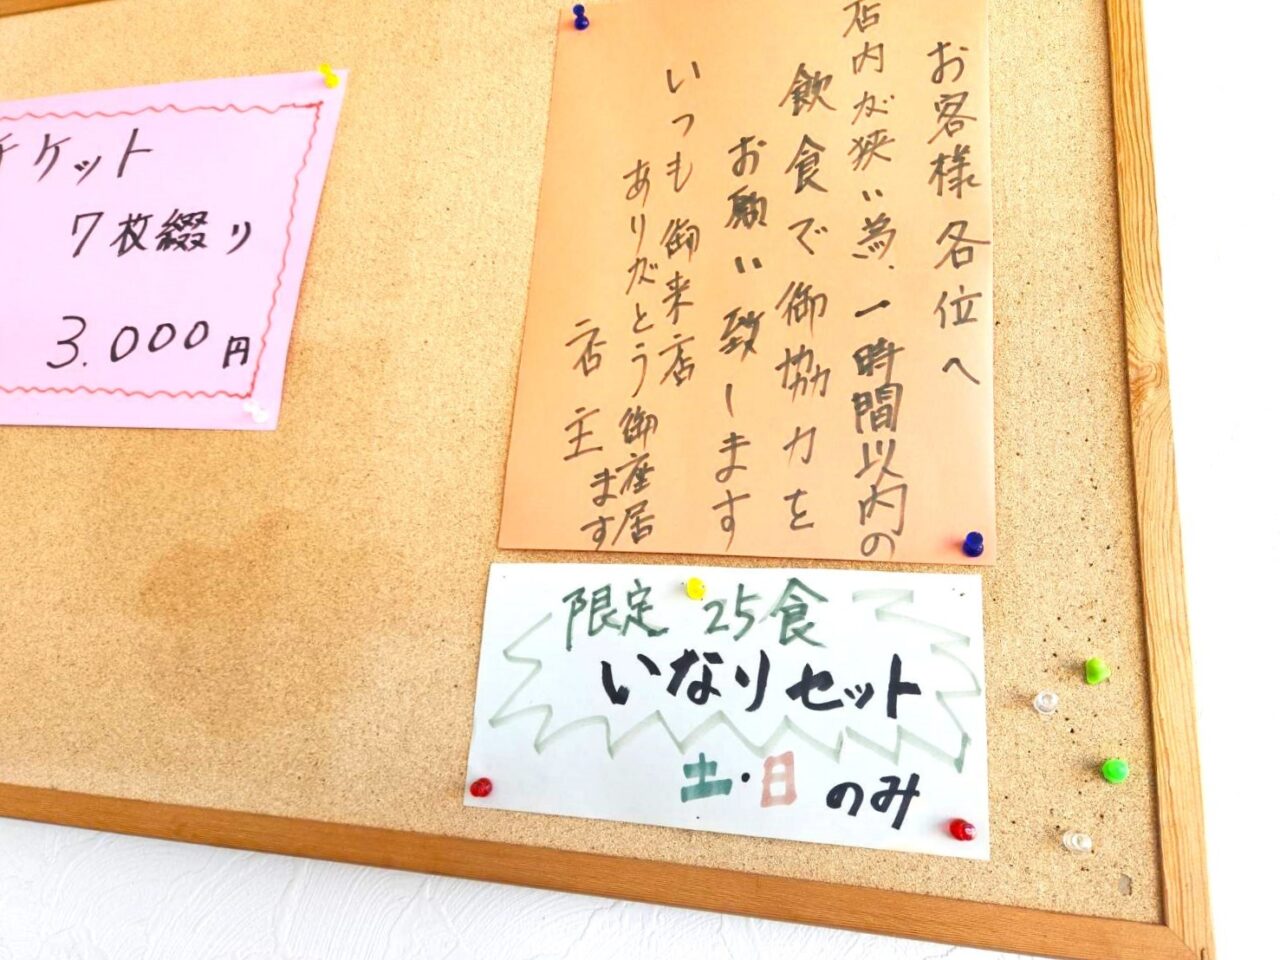 チケット
7枚綴り
3.000円
お客様各位へ
店内が狭い為.一時間以内の
飲食で御協力を
お願い致します
いつも御来店
ありがとう御座居
ます
店主
限定 25食
いなりセット
土・日のみ